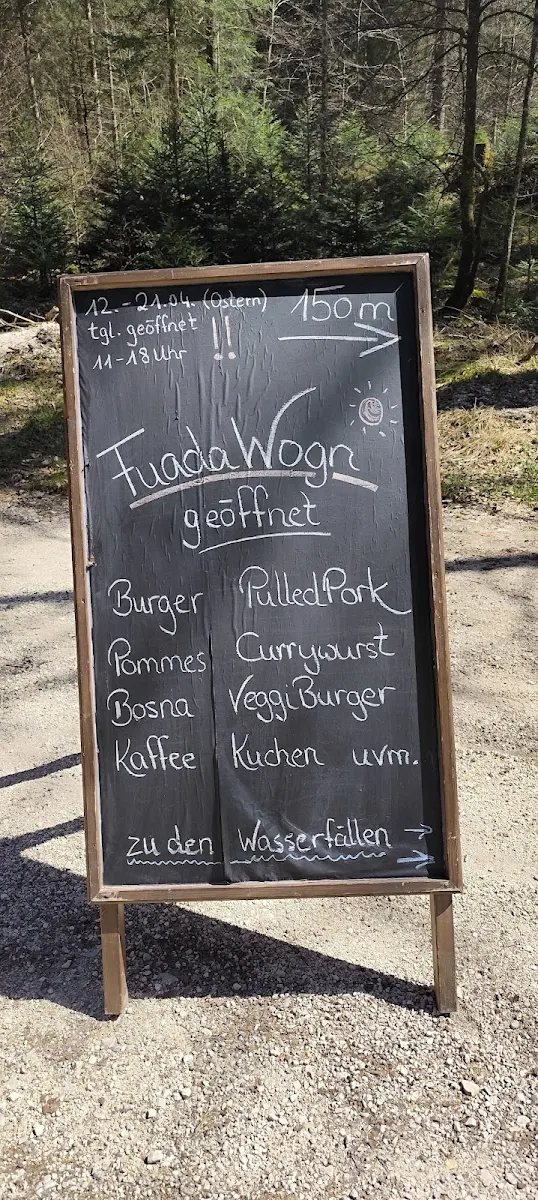 12.-21.04. (Ostern)
tgl. geöffnet !!
11-18 Uhr
150m
FuadaWogn
geöffnet
Burger PulledPork
Pommes Currywurst
Bosna VeggiBurger
Kaffee Kuchen uvm.
zu den Wasserfällen